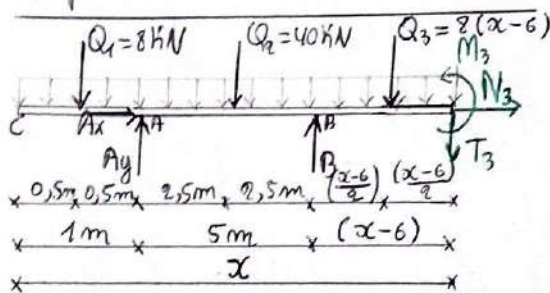 Q₁=8KN Q₂=40KN Q₃=8(x-6)
M₃
N₃
C Ax A B
Ay B T₃
0,5m 0,5m 2,5m 2,5m (x-6)/2 (x-6)/2
1m 5m (x-6)
x